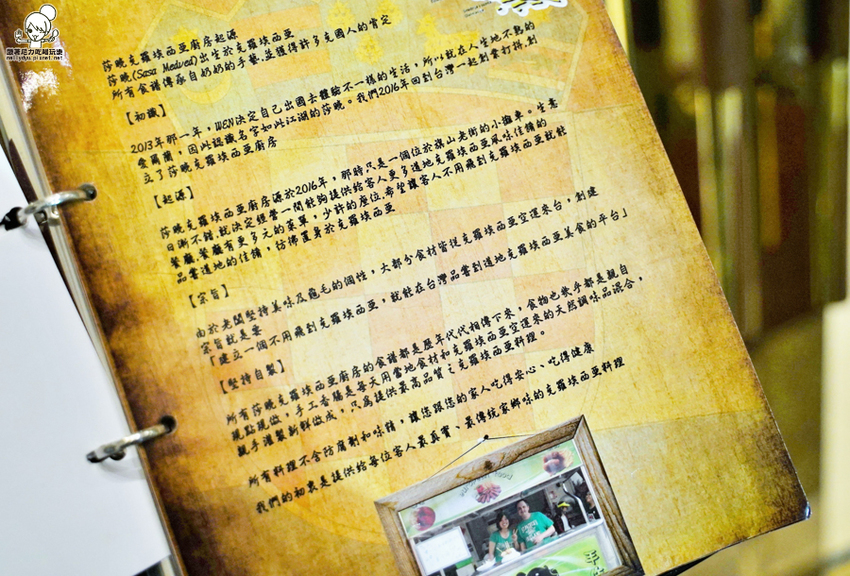 隨著足力吃喝玩樂
nellydyu.pixnet.net
莎曉克羅埃西亞廚房起源
莎曉(Sasa Medved)出生於克羅埃西亞
所有食譜傳承自奶奶的手藝,並獲得許多克國人的肯定
【初識】
2013年那一年，WEN決定自己出國去體驗不一樣的生活，所以就在人生地不熟的
愛爾蘭，因此認識名字如此江湖的莎曉。我們2016年回到台灣一起創業打拼.創
立了莎曉克羅埃西亞廚房
【起源】
莎曉克羅埃西亞廚房源於2016年，那時只是一個位於旗山老街的小攤車。生意
日漸不錯.就決定經營一間能夠提供給客人更多道地克羅埃西亞風味佳餚的
餐廳.餐廳有更多元的菜單，少許的座位.希望讓客人不用飛到克羅埃西亞就能
品嘗道地的佳餚，彷彿置身於克羅埃西亞
【宗旨】
由於老闆堅持美味及龜毛的個性，大部分食材皆從克羅埃西亞空運來台，創建
宗旨就是要
「建立一個不用飛到克羅埃西亞，就能在台灣品嘗到道地克羅埃西亞美食的平台」
【堅持自製】
所有莎曉克羅埃西亞廚房的食譜都是歷年代代相傳下來，食物也幾乎都是親自
現點現做，手工香腸是每天用當地食材和克羅埃西亞空運來的天然調味品混合，
親手灌製新鮮做成，只為提供最高品質之克羅埃西亞料理。
所有料理不含防腐劑和味精，讓您跟您的家人吃得安心、吃得健康
我們的初衷是提供給每位客人最真實、最傳統家鄉味的克羅埃西亞料理